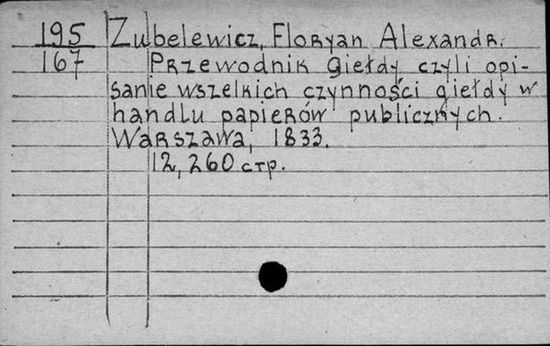 195 Zubelewicz, Floryan Alexandr.
167 Przewodnik giełdy czyli opi-
sanie wszelkich czynności giełdy w
handlu papierów publicznych.
Warszawa, 1833.
12, 260 стр.